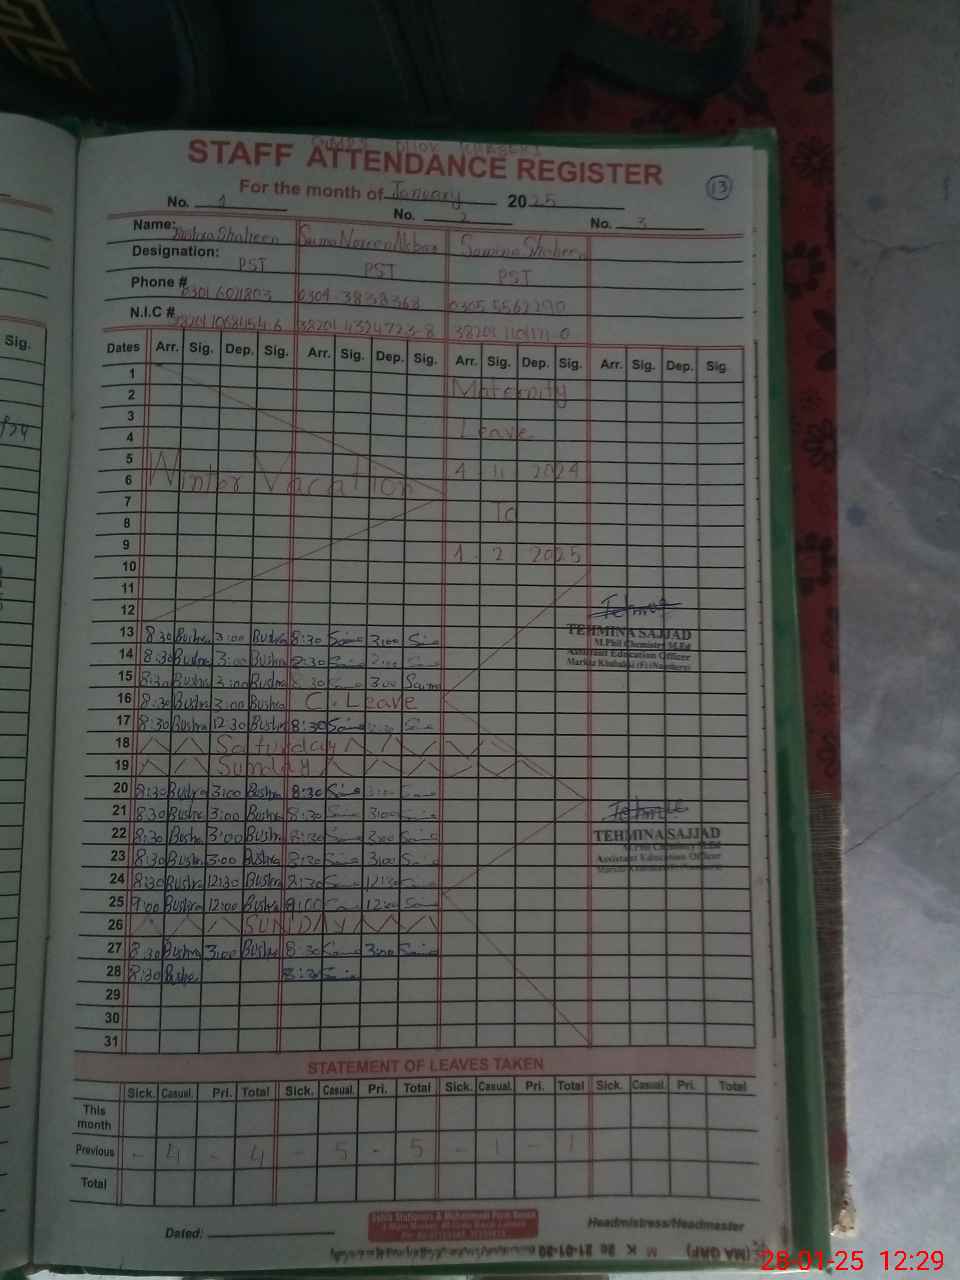 STAFF ATTENDANCE REGISTER
13
For the month of January 2025
No. 1 No. 2 No. 3
Name: Bushra Shaheen Saima Noreen Akbar Samina Shaheen
Designation: PST PST PST
Phone # 0304-3838368 0305 5562290
N.I.C # 38201 4324723-8
Dates Arr. Sig. Dep. Sig. Arr. Sig. Dep. Sig. Arr. Sig. Dep. Sig. Arr. Sig. Dep. Sig.
Sig.
1
2 Maternity
3
4 Leave
5
6 Winter Vacation 4 11 2024
7
8 To
9
10 1-2 2025
11
12
13 8:30 Bushra 3:00 Bushra 8:30 Saima 3:00 Saima
14 8:30 Bushra 3:00 Bushra 8:30 Saima 3:00 Saima
15 8:30 Bushra 3:00 Bushra 8:30 Saima 3:00 Saima
16 8:30 Bushra 3:00 Bushra C. Leave
17 8:30 Bushra 12:30 Bushra 8:30 Saima 12:30 Saima
18 Saturday
19 Sunday
20 8:30 Bushra 3:00 Bushra 8:30 Saima 3:00 Saima
21 8:30 Bushra 3:00 Bushra 8:30 Saima 3:00 Saima
22 8:30 Bushra 3:00 Bushra 8:30 Saima 3:00 Saima
23 8:30 Bushra 3:00 Bushra 8:30 Saima 3:00 Saima
24 8:30 Bushra 12:30 Bushra 8:30 Saima 12:30 Saima
25 9:00 Bushra 12:00 Bushra 9:00 Saima 12:00 Saima
26 SUNDAY
27 8:30 Bushra 3:00 Bushra 8:30 Saima 3:00 Saima
28 8:30 Bushra 8:30 Saima
29
30
31
Tehmina
TEHMINA SAJJAD
M.Phil Chemistry M.Ed
Assistant Education Officer
Markaz Khabakki (F) (Naushera)
Tehmina
TEHMINA SAJJAD
M.Phil Chemistry M.Ed
Assistant Education Officer
STATEMENT OF LEAVES TAKEN
Sick. Casual. Pri. Total Sick. Casual. Pri. Total Sick. Casual. Pri. Total Sick. Casual. Pri. Total
This month
Previous - 4 - 4 - 5 - 5 - 1 - 1
Total
Dated:
Headmistress/Headmaster
28-01-25 12:29